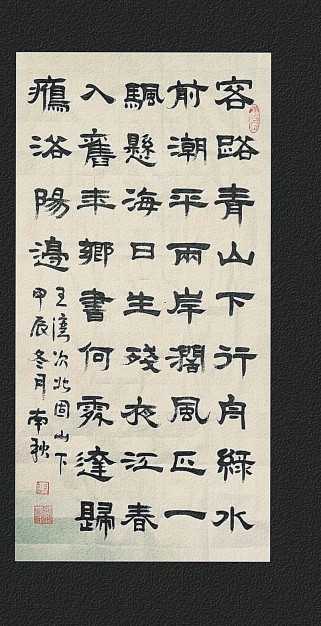 客路青山下行舟綠水
前潮平兩岸濶風正一
颿懸海日生殘夜江春
入舊年鄉書何處達歸
鴈洛陽邊
王灣次北固山下
甲辰冬月 南秋